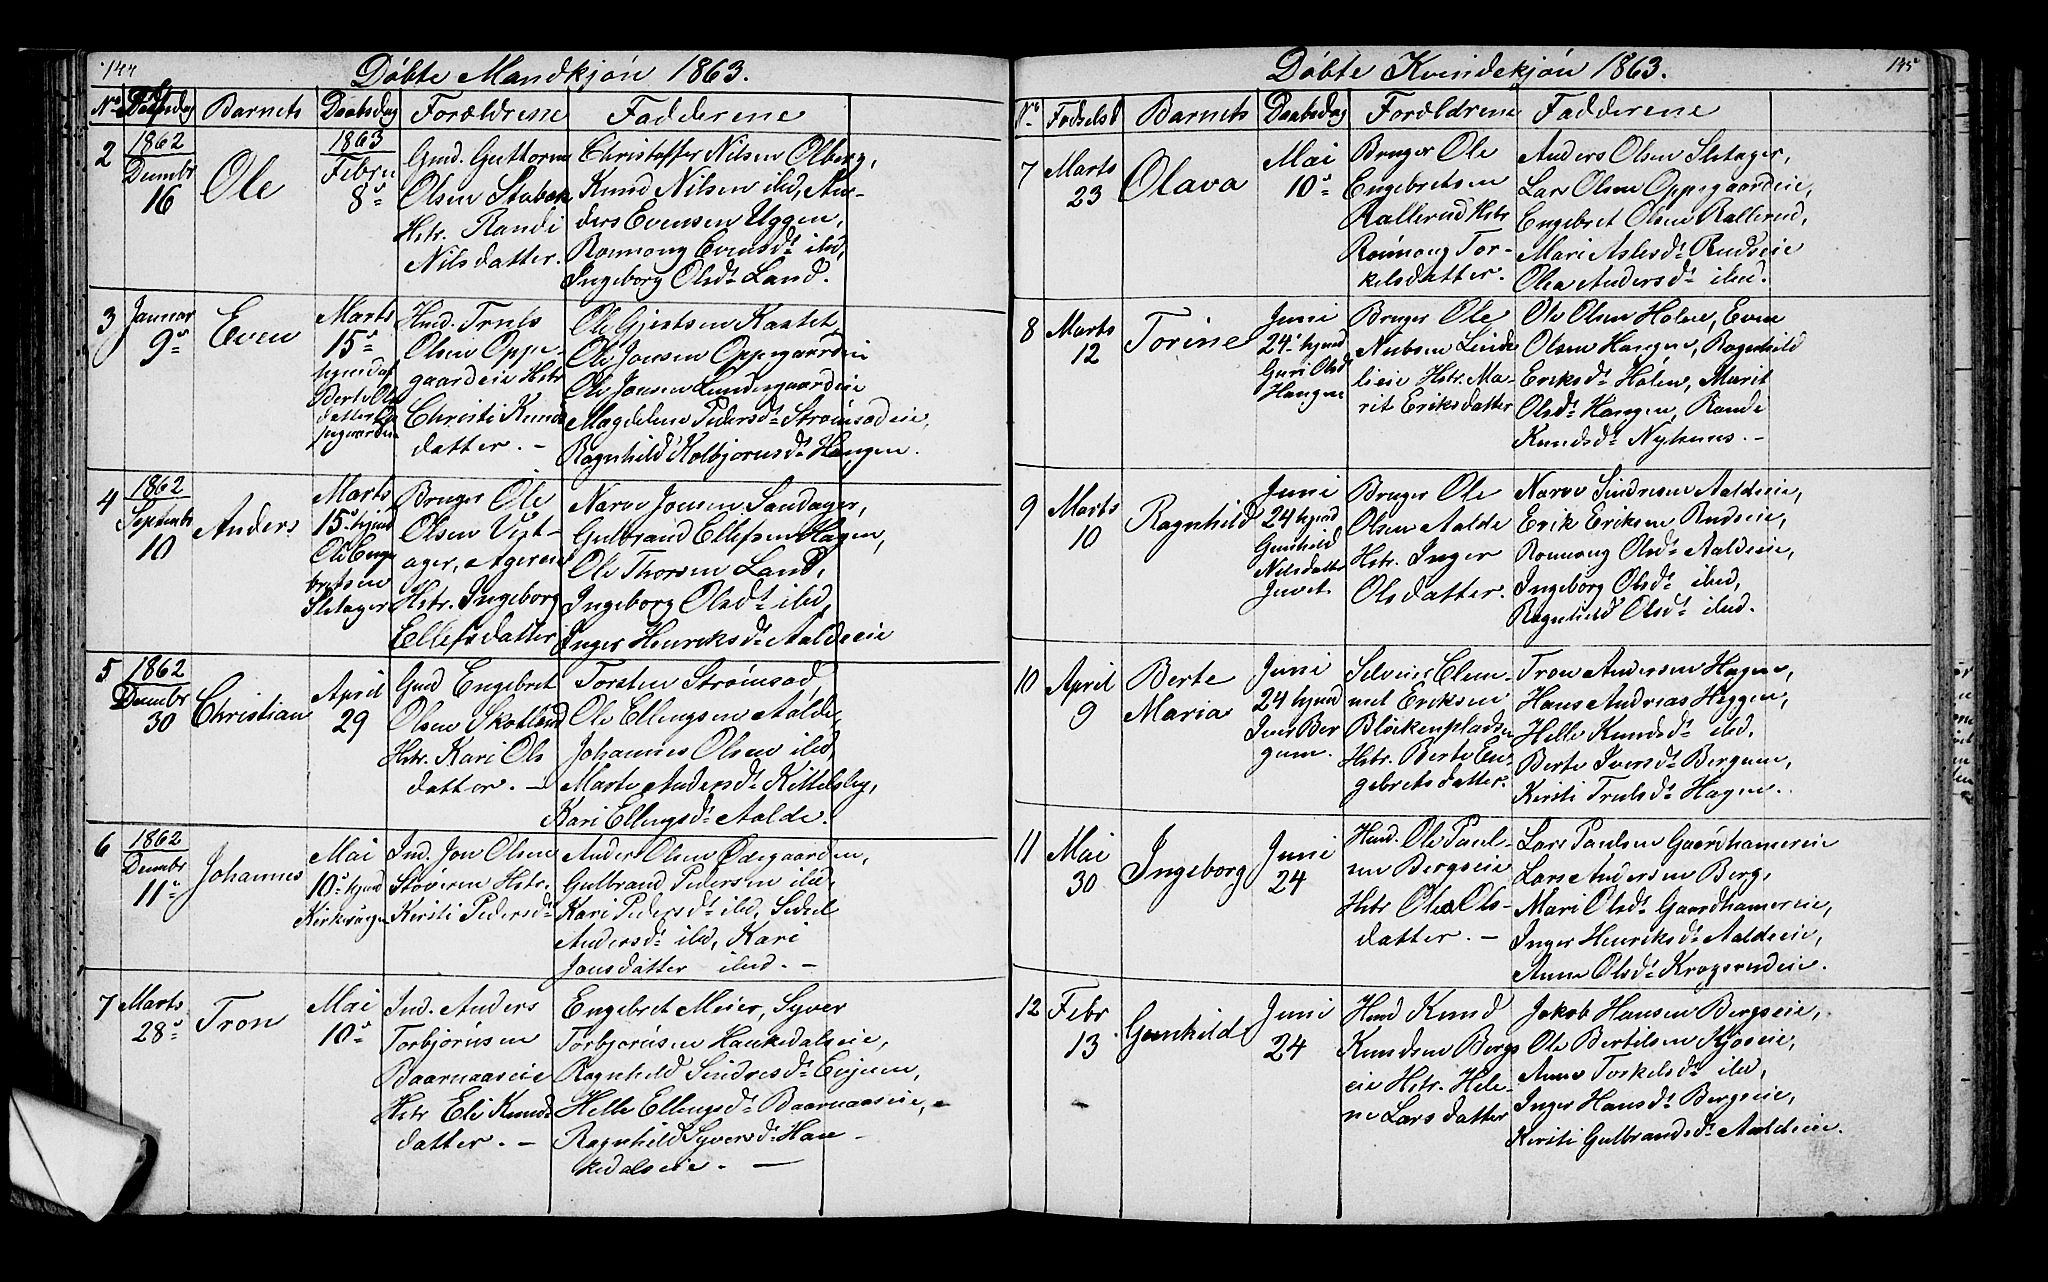 144
Døbte Mandkjøn 1863.
No Fødselsdag Barnets Daabsdag Forældrene Fadderene
2 1862 Decembr 16 Ole 1863 Febru 8de
Gmd. Guttorm
Olsen Stubak
Hstr. Randi
Nilsdatter.
Christoffer Nilsen Olberg,
Knud Nilsen ibd, An-
ders Evensen Uggen,
Rønnoug Evensdtr ibd,
Ingeborg Olsdtr Land.
3 Januar 9de Even Marts 15de
hjmdøf
Berte Ols
datter Op
pegaardeie
Hmd. Truls
Olsen Oppe-
gaardeie Hstr
Christi Knuds
datter. -
Ole Gjertsen Kastet
Ole Jonsen Oppegaardeie
Ole Jonsen Lundesgaardeie
Magdelene Pedersdtr Strømsodeie,
Ragnhild Kolbjørnsdtr Haugen.
4 1862 Septembr 10 Anders Marts
15de hjmd
Ole Enge
bretsen
Sletager
Bruger Ole
Olsen Vest-
ager, Ageren
Hstr. Ingeborg
Ellefsdatter
Narve Jonsen Sandager,
Gulbrand Ellefsen Hagen,
Ole Thorsen Land,
Ingeborg Olsdtr ibd,
Inger Henriksdtr Aaldeeie
5 1862 Decembr 30 Christian April 29
Gmd Engebret
Olsen Skotland
Hstr. Kari Ols
datter. -
Torsten Strømsod
Ole Ellingsen Aalde,
Johannes Olsen ibd,
Marte Andersdtr Kittelsby,
Kari Ellingsdtr Aalde.
6 1862 Decembr 11te Johannes Mai
10de hjmd
Kirkesanger
Ind. Jon Olsen
Støveren Hstr.
Kersti Pedersdtr
Anders Olsen Ødegaarden,
Gulbrand Pedersen ibd,
Kari Pedersdtr ibd, Sidsel
Andersdtr ibd, Kari
Jonsdatter ibd. -
7 Marts 28de Tron Mai 10de
Ind. Anders
Torbjørnsen
Baarnaaseie
Hstr Eli Knuds
datter. -
Engebret Meier, Syver
Torbjørnsen Haukedalseie,
Ragnhild Sindresdtr Evjuen,
Helle Ellingsdtr Baarnaaseie,
Ragnhild Syversdtr Hau-
kedalseie. -
145
Døbte Kvindekjøn 1863.
No Fødselsd Barnets Daabsdag Forældrene Fadderene
7 Marts 23 Olava Mai 10de
Bruger Ole
Engebretsen
Rallerud Hstr
Rønnoug Tor-
kelsdatter.
Anders Olsen Sletager,
Lars Olsen Oppegaardeie,
Engebret Olsen Rallerud,
Mari Aslesdtr Rudseie
Olea Andersdtr ibid.
8 Marts 12 Torine Juni
24de hjmd
Guri Olsd
Haugen
Bruger Ole
Nubsen Linde
lieie Hstr. Ma-
rit Eriksdatter
Ole Olsen Holen, Even
Olsen Haugen, Ragnhild
Eriksdtr Holen, Marit
Olsdtr Haugen, Rande
Knudsdtr Nyhuus. -
9 Marts 10 Ragnhild Juni
24 hjmd
Gunhild
Nilsdatter
Juvet.
Bruger Ole
Olsen Aalde
Hstr. Inger
Olsdatter.
Narve Sindresen Aaldeeie,
Erik Eriksen Rudseie,
Rønnoug Olsdtr Aaldeeie,
Ingeborg Olsdtr ibid,
Ragnhild Olsdtr ibid.
10 April 9 Berte Maria Juni
24 hjmd
Iver Ber
gum.
Selveier Clem-
met Eriksen
Blikenpladsen
Hstr. Berte En-
gebretsdatter.
Tron Andersen Hagen,
Hans Andreas Heggen,
Helle Knudsdtr ibd,
Berte Iversdtr Bergum,
Kersti Trulsdtr Hagen.
11 Mai 30 Ingeborg Juni 24
Hmd. Ole Paul-
sen Bergseie
Hstr Olea Ols-
datter. -
Lars Paulsen Gaardhamereie
Lars Andersen Berg,
Mari Olsdtr Gaardhamereie,
Inger Henriksdtr Aaldseie,
Anne Olsdtr Kragsrudeie.
12 Febr 13 Gunhild Juni 24
Hmd Knud
Knudsen Bergs
eie Hstr. Hele-
ne Larsdatter
Jakob Hansen Bergseie,
Ole Bertilsen Kjoseie,
Anne Torkelsdtr ibd,
Inger Hansdtr Bergseie,
Kersti Gulbrandsdtr Aaldeeie.